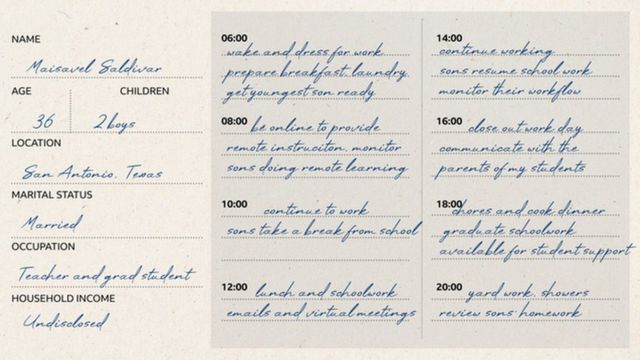 NAME
Maisavel Saldivar
AGE
CHILDREN
36
2 boys
LOCATION
San Antonio, Texas
MARITAL STATUS
Married
OCCUPATION
Teacher and grad student
HOUSEHOLD INCOME
Undisclosed
06:00
wake and dress for work
prepare breakfast, laundry,
get youngest son ready
08:00
be online to provide
remote instruciton, monitor
sons doing remote learning
10:00
continue to work
sons take a break from school
12:00
lunch and schoolwork
emails and virtual meetings
14:00
continue working
sons resume school work
monitor their workflow
16:00
close out work day
communicate with the
parents of my students
18:00
chores and cook dinner
graduate schoolwork
available for student support
20:00
yard work, showers
review sons' homework